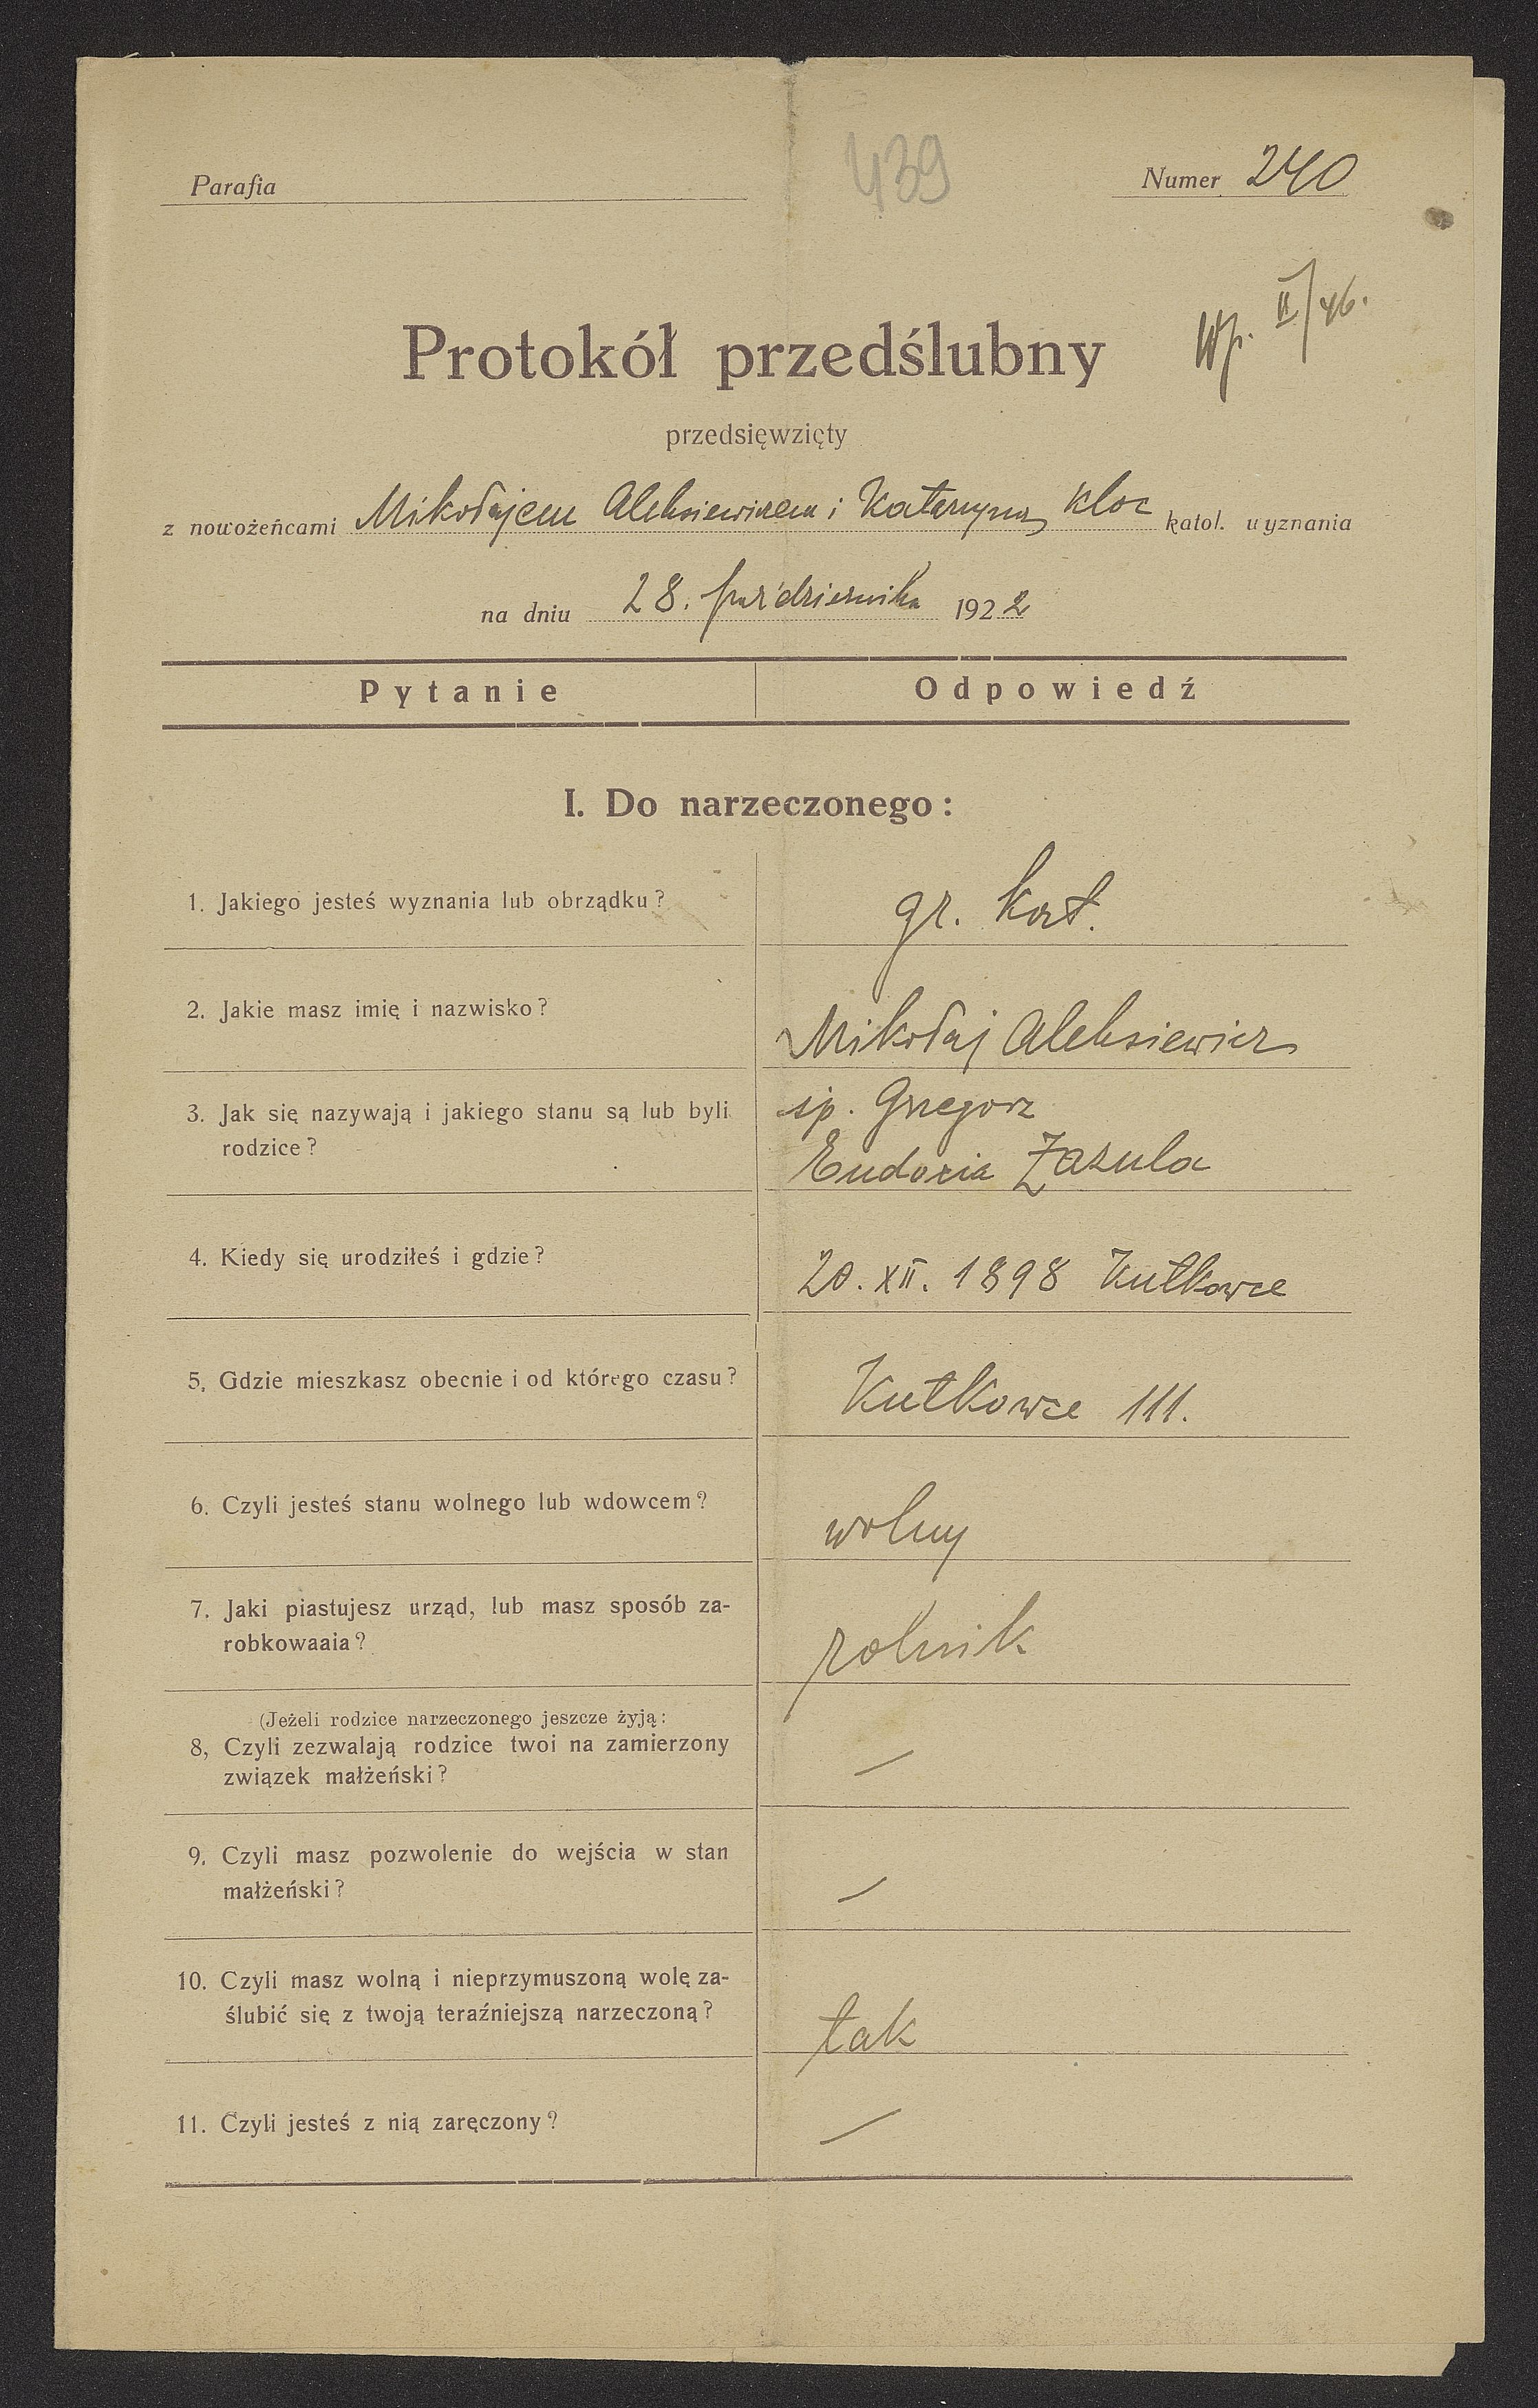 Parafia
439
Numer 240
Wp. II/46.
Protokół przedślubny
przedsięwzięty
z nowożeńcami Mikołajem Aleksiewiczem i Katarzyną Kloc katol. wyznania
na dniu 28. października 1922
Pytanie Odpowiedź
I. Do narzeczonego:
1. Jakiego jesteś wyznania lub obrządku? gr. kat.
2. Jakie masz imię i nazwisko? Mikołaj Aleksiewicz
3. Jak się nazywają i jakiego stanu są lub byli śp. Grzegorz
rodzice? Eudoxia Zazula
4. Kiedy się urodziłeś i gdzie? 20. XII. 1898 Kutkowce
5. Gdzie mieszkasz obecnie i od którego czasu? Kutkowce 111.
6. Czyli jesteś stanu wolnego lub wdowcem? wolny
7. Jaki piastujesz urząd, lub masz sposób za-
robkowaaia? rolnik
(Jeżeli rodzice narzeczonego jeszcze żyją:
8, Czyli zezwalają rodzice twoi na zamierzony —
związek małżeński?
9. Czyli masz pozwolenie do wejścia w stan
małżeński? —
10. Czyli masz wolną i nieprzymuszoną wolę za-
ślubić się z twoją teraźniejszą narzeczoną? tak
11. Czyli jesteś z nią zaręczony? —